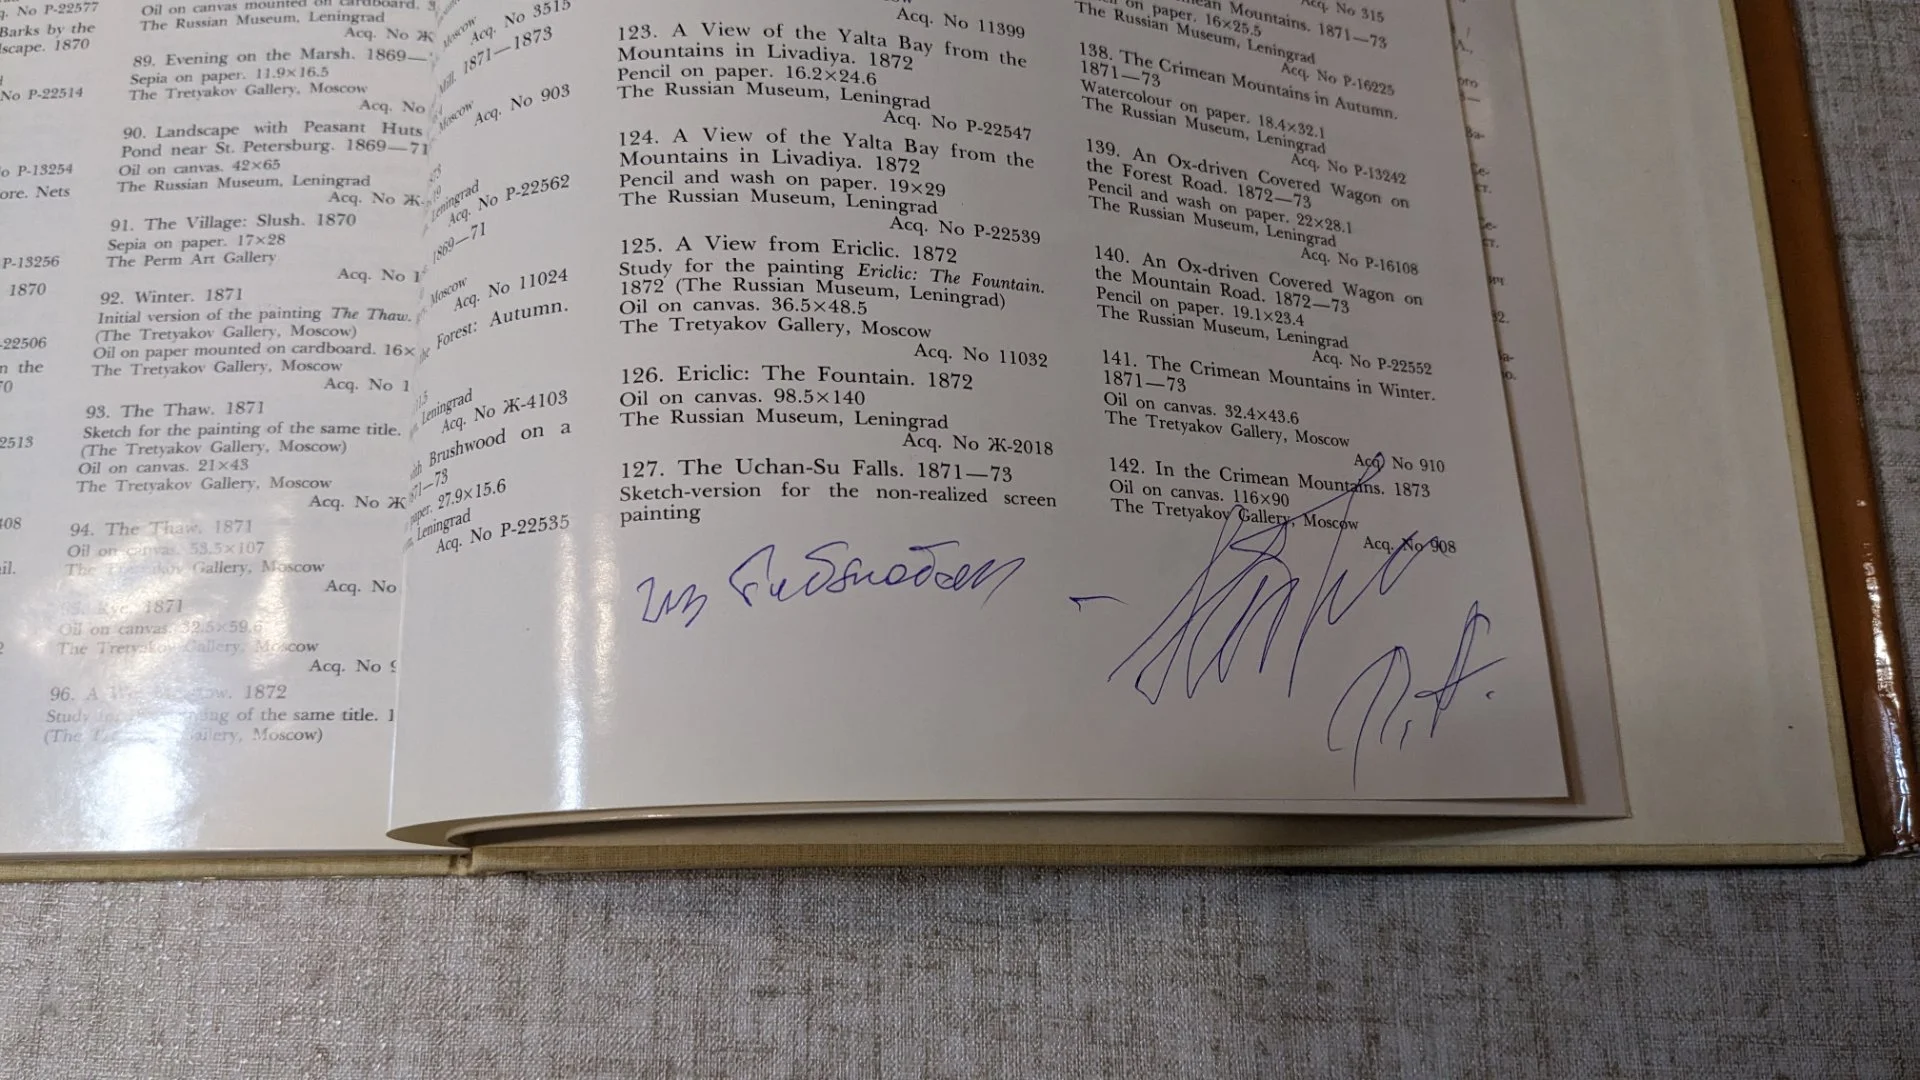 o. No P-22577
Barks by the
scape. 1870
No P-22514
o P-13254
ore. Nets
P-13256
1870
-22506
n the
70
2513
408
il.
2
Oil on canvas mounted on cardboard. 3
The Russian Museum, Leningrad
Acq. No Ж
89. Evening on the Marsh. 1869—
Sepia on paper. 11.9×16.5
The Tretyakov Gallery, Moscow
Acq. No
90. Landscape with Peasant Huts
Pond near St. Petersburg. 1869—71
Oil on canvas. 42×65
The Russian Museum, Leningrad
Acq. No Ж-
91. The Village: Slush. 1870
Sepia on paper. 17×28
The Perm Art Gallery
Acq. No 1
92. Winter. 1871
Initial version of the painting The Thaw.
(The Tretyakov Gallery, Moscow)
Oil on paper mounted on cardboard. 16×
The Tretyakov Gallery, Moscow
Acq. No 1
93. The Thaw. 1871
Sketch for the painting of the same title.
(The Tretyakov Gallery, Moscow)
Oil on canvas. 21×43
The Tretyakov Gallery, Moscow
Acq. No Ж
94. The Thaw. 1871
Oil on canvas. 53.5×107
The Tretyakov Gallery, Moscow
Acq. No
95. Rye. 1871
Oil on canvas. 32.5×59.6
The Tretyakov Gallery, Moscow
Acq. No 9
96. A 1872
Study of the same title. 1
(The Gallery, Moscow)
Moscow
Acq. No 3515
Mill. 1871—1873
Moscow
Acq. No 903
Leningrad
Acq. No P-22562
1869—71
Moscow
Acq. No 11024
the Forest: Autumn.
Leningrad
Acq. No Ж-4103
Brushwood on a
71—73
paper. 27.9×15.6
Leningrad
Acq. No P-22535
Acq. No 11399
123. A View of the Yalta Bay from the
Mountains in Livadiya. 1872
Pencil on paper. 16.2×24.6
The Russian Museum, Leningrad
Acq. No P-22547
124. A View of the Yalta Bay from the
Mountains in Livadiya. 1872
Pencil and wash on paper. 19×29
The Russian Museum, Leningrad
Acq. No P-22539
125. A View from Ericlic. 1872
Study for the painting Ericlic: The Fountain.
1872 (The Russian Museum, Leningrad)
Oil on canvas. 36.5×48.5
The Tretyakov Gallery, Moscow
Acq. No 11032
126. Ericlic: The Fountain. 1872
Oil on canvas. 98.5×140
The Russian Museum, Leningrad
Acq. No Ж-2018
127. The Uchan-Su Falls. 1871—73
Sketch-version for the non-realized screen
painting
Acq. No 315
Mountains. 1871—73
on paper. 16×25.5
The Russian Museum, Leningrad
Acq. No P-16225
138. The Crimean Mountains in Autumn.
1871—73
Watercolour on paper. 18.4×32.1
The Russian Museum, Leningrad
Acq. No P-13242
139. An Ox-driven Covered Wagon on
the Forest Road. 1872—73
Pencil and wash on paper. 22×28.1
The Russian Museum, Leningrad
Acq. No P-16108
140. An Ox-driven Covered Wagon on
the Mountain Road. 1872—73
Pencil on paper. 19.1×23.4
The Russian Museum, Leningrad
Acq. No P-22552
141. The Crimean Mountains in Winter.
1871—73
Oil on canvas. 32.4×43.6
The Tretyakov Gallery, Moscow
Acq. No 910
142. In the Crimean Mountains. 1873
Oil on canvas. 116×90
The Tretyakov Gallery, Moscow
Acq. No 908
из библиотеки –